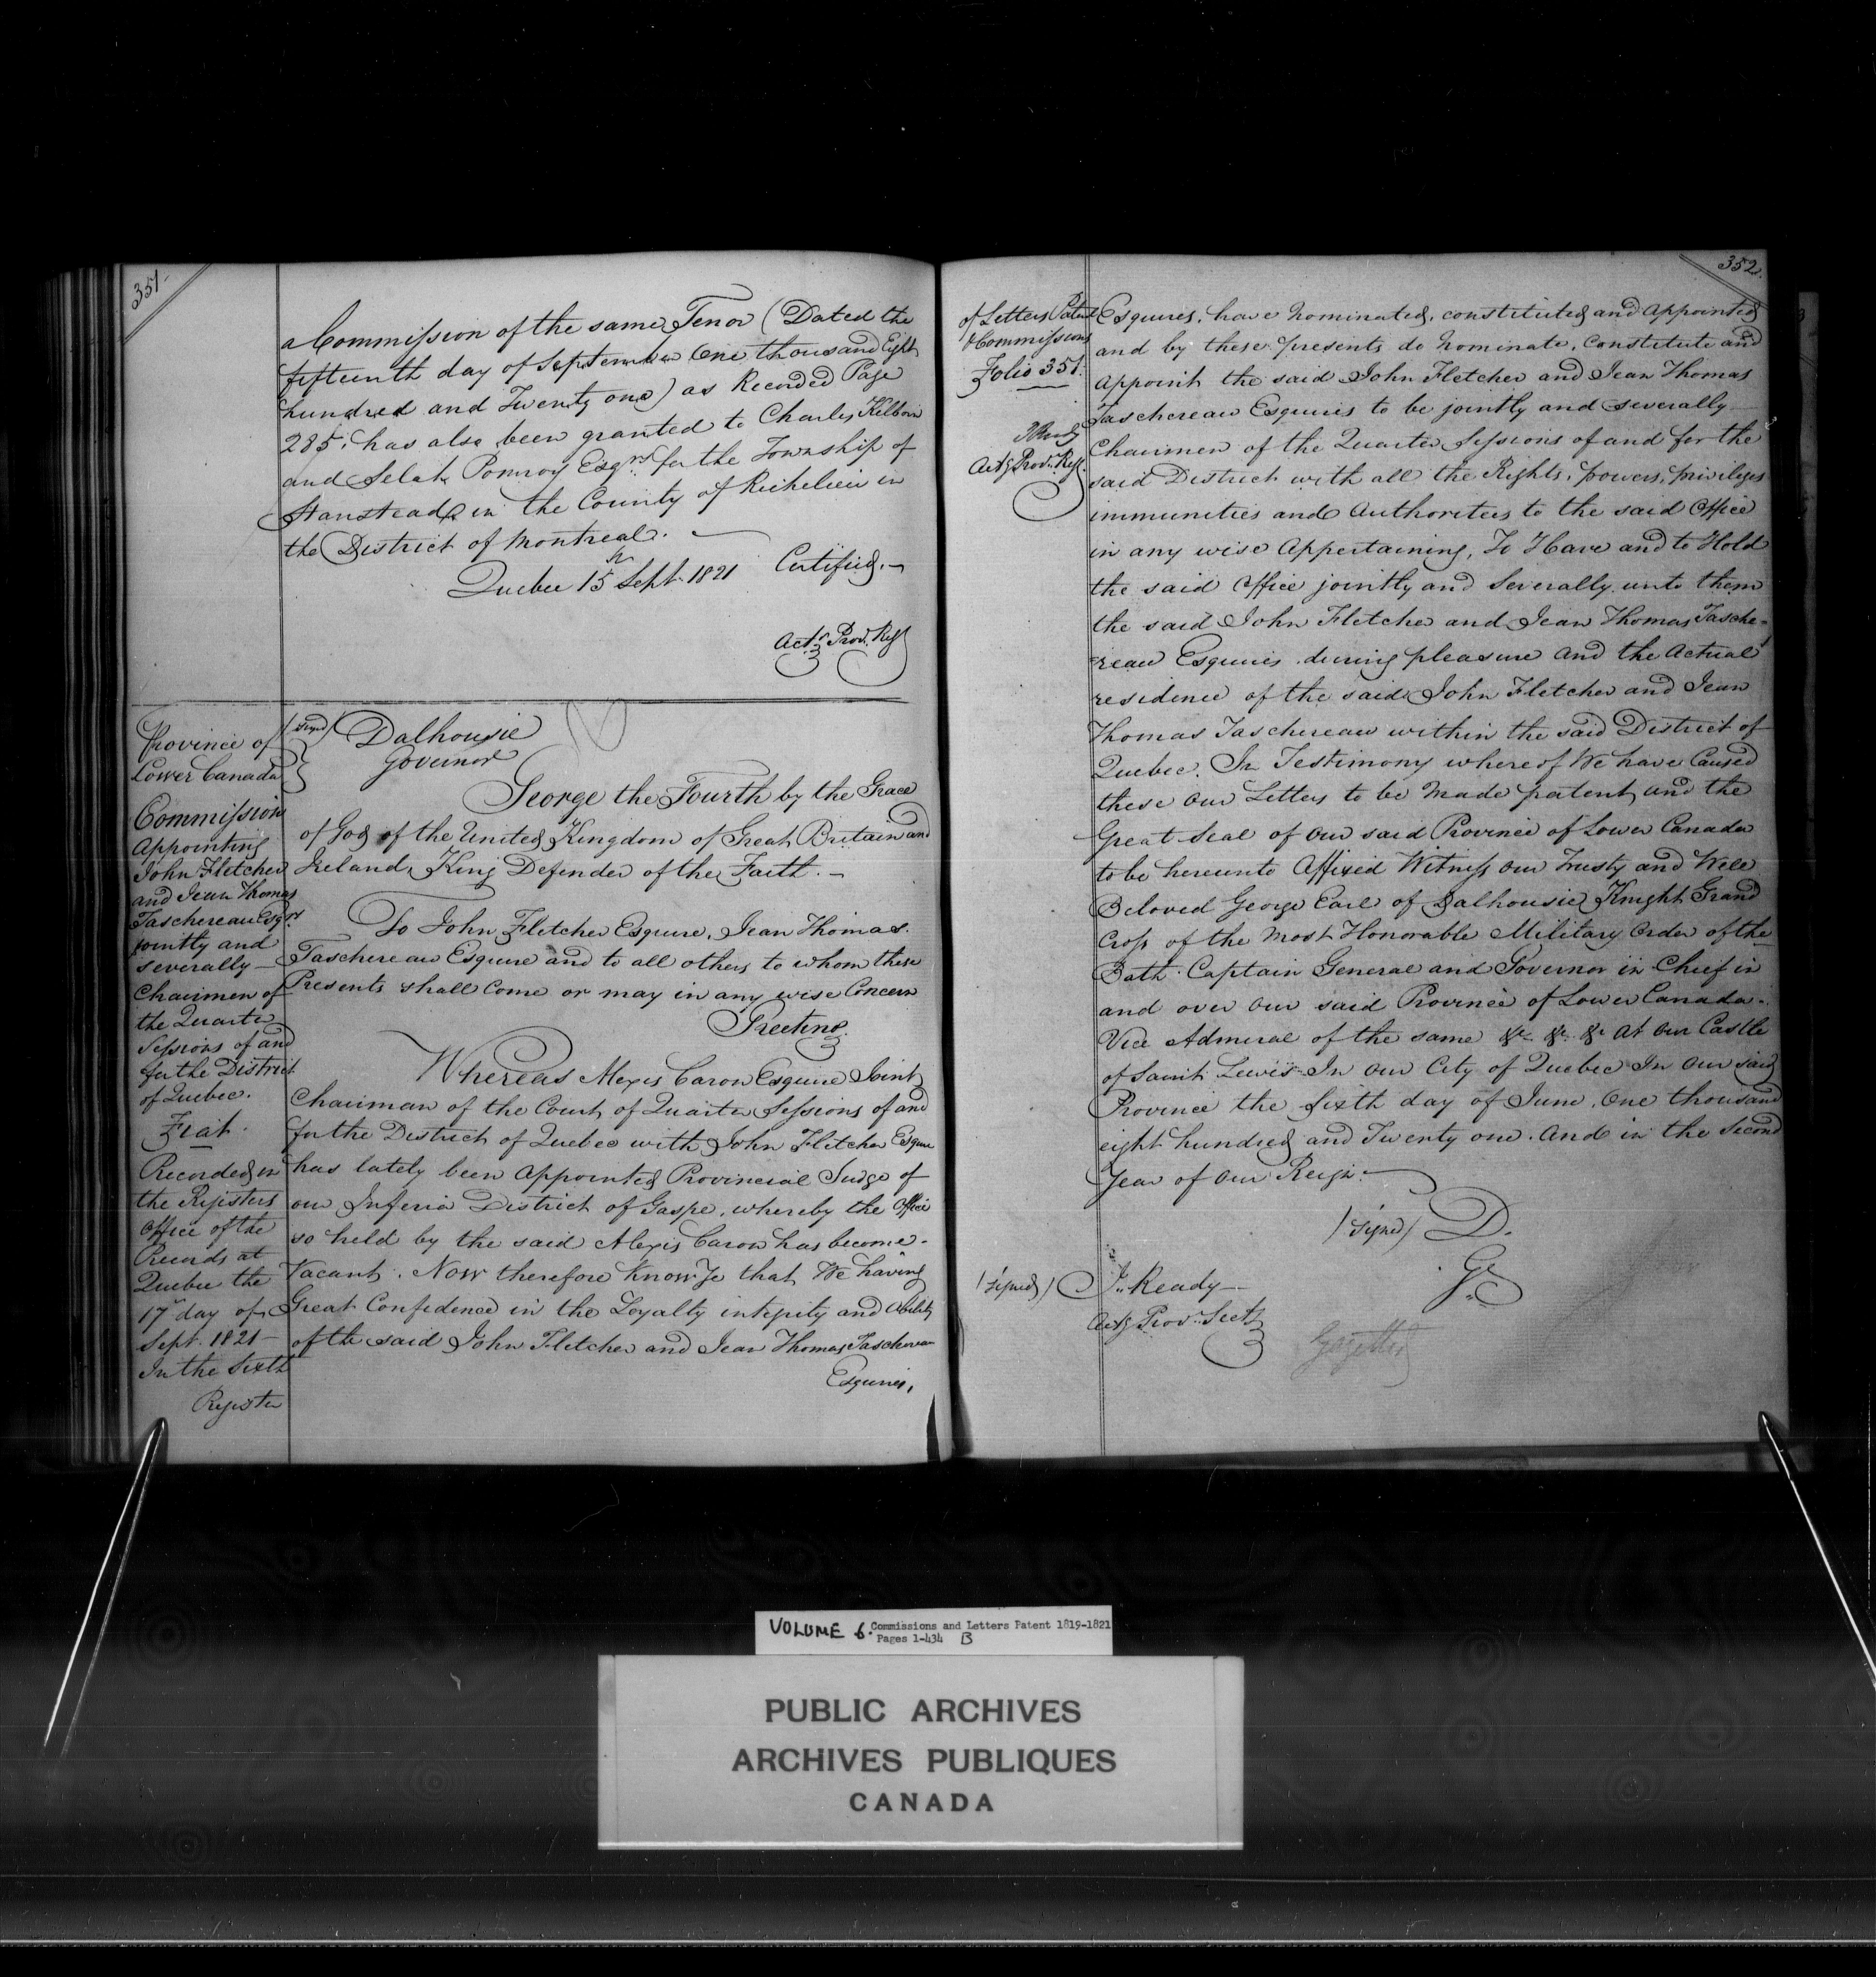 351.
a Commission of the same Tenor (Dated the
fifteenth day of September One thousand Eight
hundred and Twenty one) as Recorded Page
285, has also been granted to Charles Kilborn
and Selah Pomroy Esqrs for the Township of
Stanstead, in the County of Richelieu in
the District of Montreal.
Quebec 15th Sept. 1821 Certified.
Actg Prov. Regr
Province of
Lower Canada
Commission
Appointing
John Fletcher
and Jean Thomas
Taschereau Esqrs
jointly and
severally
Chairmen of
the Quarter
Sessions of and
for the District
of Quebec.
Fiat.
Recorded in
the Registers
Office of the
Records at
Quebec the
17th day of
Sept. 1821
In the Sixth
Register
(signed) Dalhousie
Governor
George the Fourth by the Grace
of God of the United Kingdom of Great Britain and
Ireland, King Defender of the Faith.
To John Fletcher Esquire, Jean Thomas
Taschereau Esquire and to all others to whom these
Presents shall Come or may in any wise Concern
Greeting.
Whereas Alexis Caron Esquire Joint
Chairman of the Court of Quarter Sessions of and
for the District of Quebec with John Fletcher Esquire
has lately been Appointed Provincial Judge of
our Inferior District of Gaspe, whereby the Office
so held by the said Alexis Caron has become
Vacant. Now therefore Know Ye that We having
Great Confidence in the Loyalty integrity and Ability
of the said John Fletcher and Jean Thomas Taschereau
Esquires,
352.
of Letters Patent
& Commissions
Folio 351.
Actg Prov. Regr.
Esquires, have Nominated, constituted and Appointed
and by these presents do Nominate, Constitute and
Appoint the said John Fletcher and Jean Thomas
Taschereau Esquires to be jointly and severally
Chairmen of the Quarter Sessions of and for the
said District with all the Rights, powers, privileges
immunities and Authorities to the said Office
in any wise Appertaining, To Have and to Hold
the said Office jointly and Severally unto them
the said John Fletcher and Jean Thomas Tasche-
=reau Esquires during pleasure and the Actual
residence of the said John Fletcher and Jean
Thomas Taschereau within the said District of
Quebec. In Testimony whereof We have Caused
these our Letters to be Made patent, and the
Great Seal of our said Province of Lower Canada
to be hereunto Affixed Witness our Trusty and Well
Beloved George Earl of Dalhousie Knight Grand
Cross of the Most Honorable Military Order of the
Bath. Captain General and Governor in Chief in
and over our said Province of Lower Canada.
Vice Admiral of the same &c &c &c At our Castle
of Saint Lewis In our City of Quebec In our said
Province the Sixth day of June, One thousand
eight hundred and Twenty one. And in the Second
Year of our Reign.
(signed) D.
G.
(signed) J. Ready
Actg Prov. Secty
Gazetted
VOLUME 6. Commissions and Letters Patent 1819-1821
Pages 1-434 B
PUBLIC ARCHIVES
ARCHIVES PUBLIQUES
CANADA